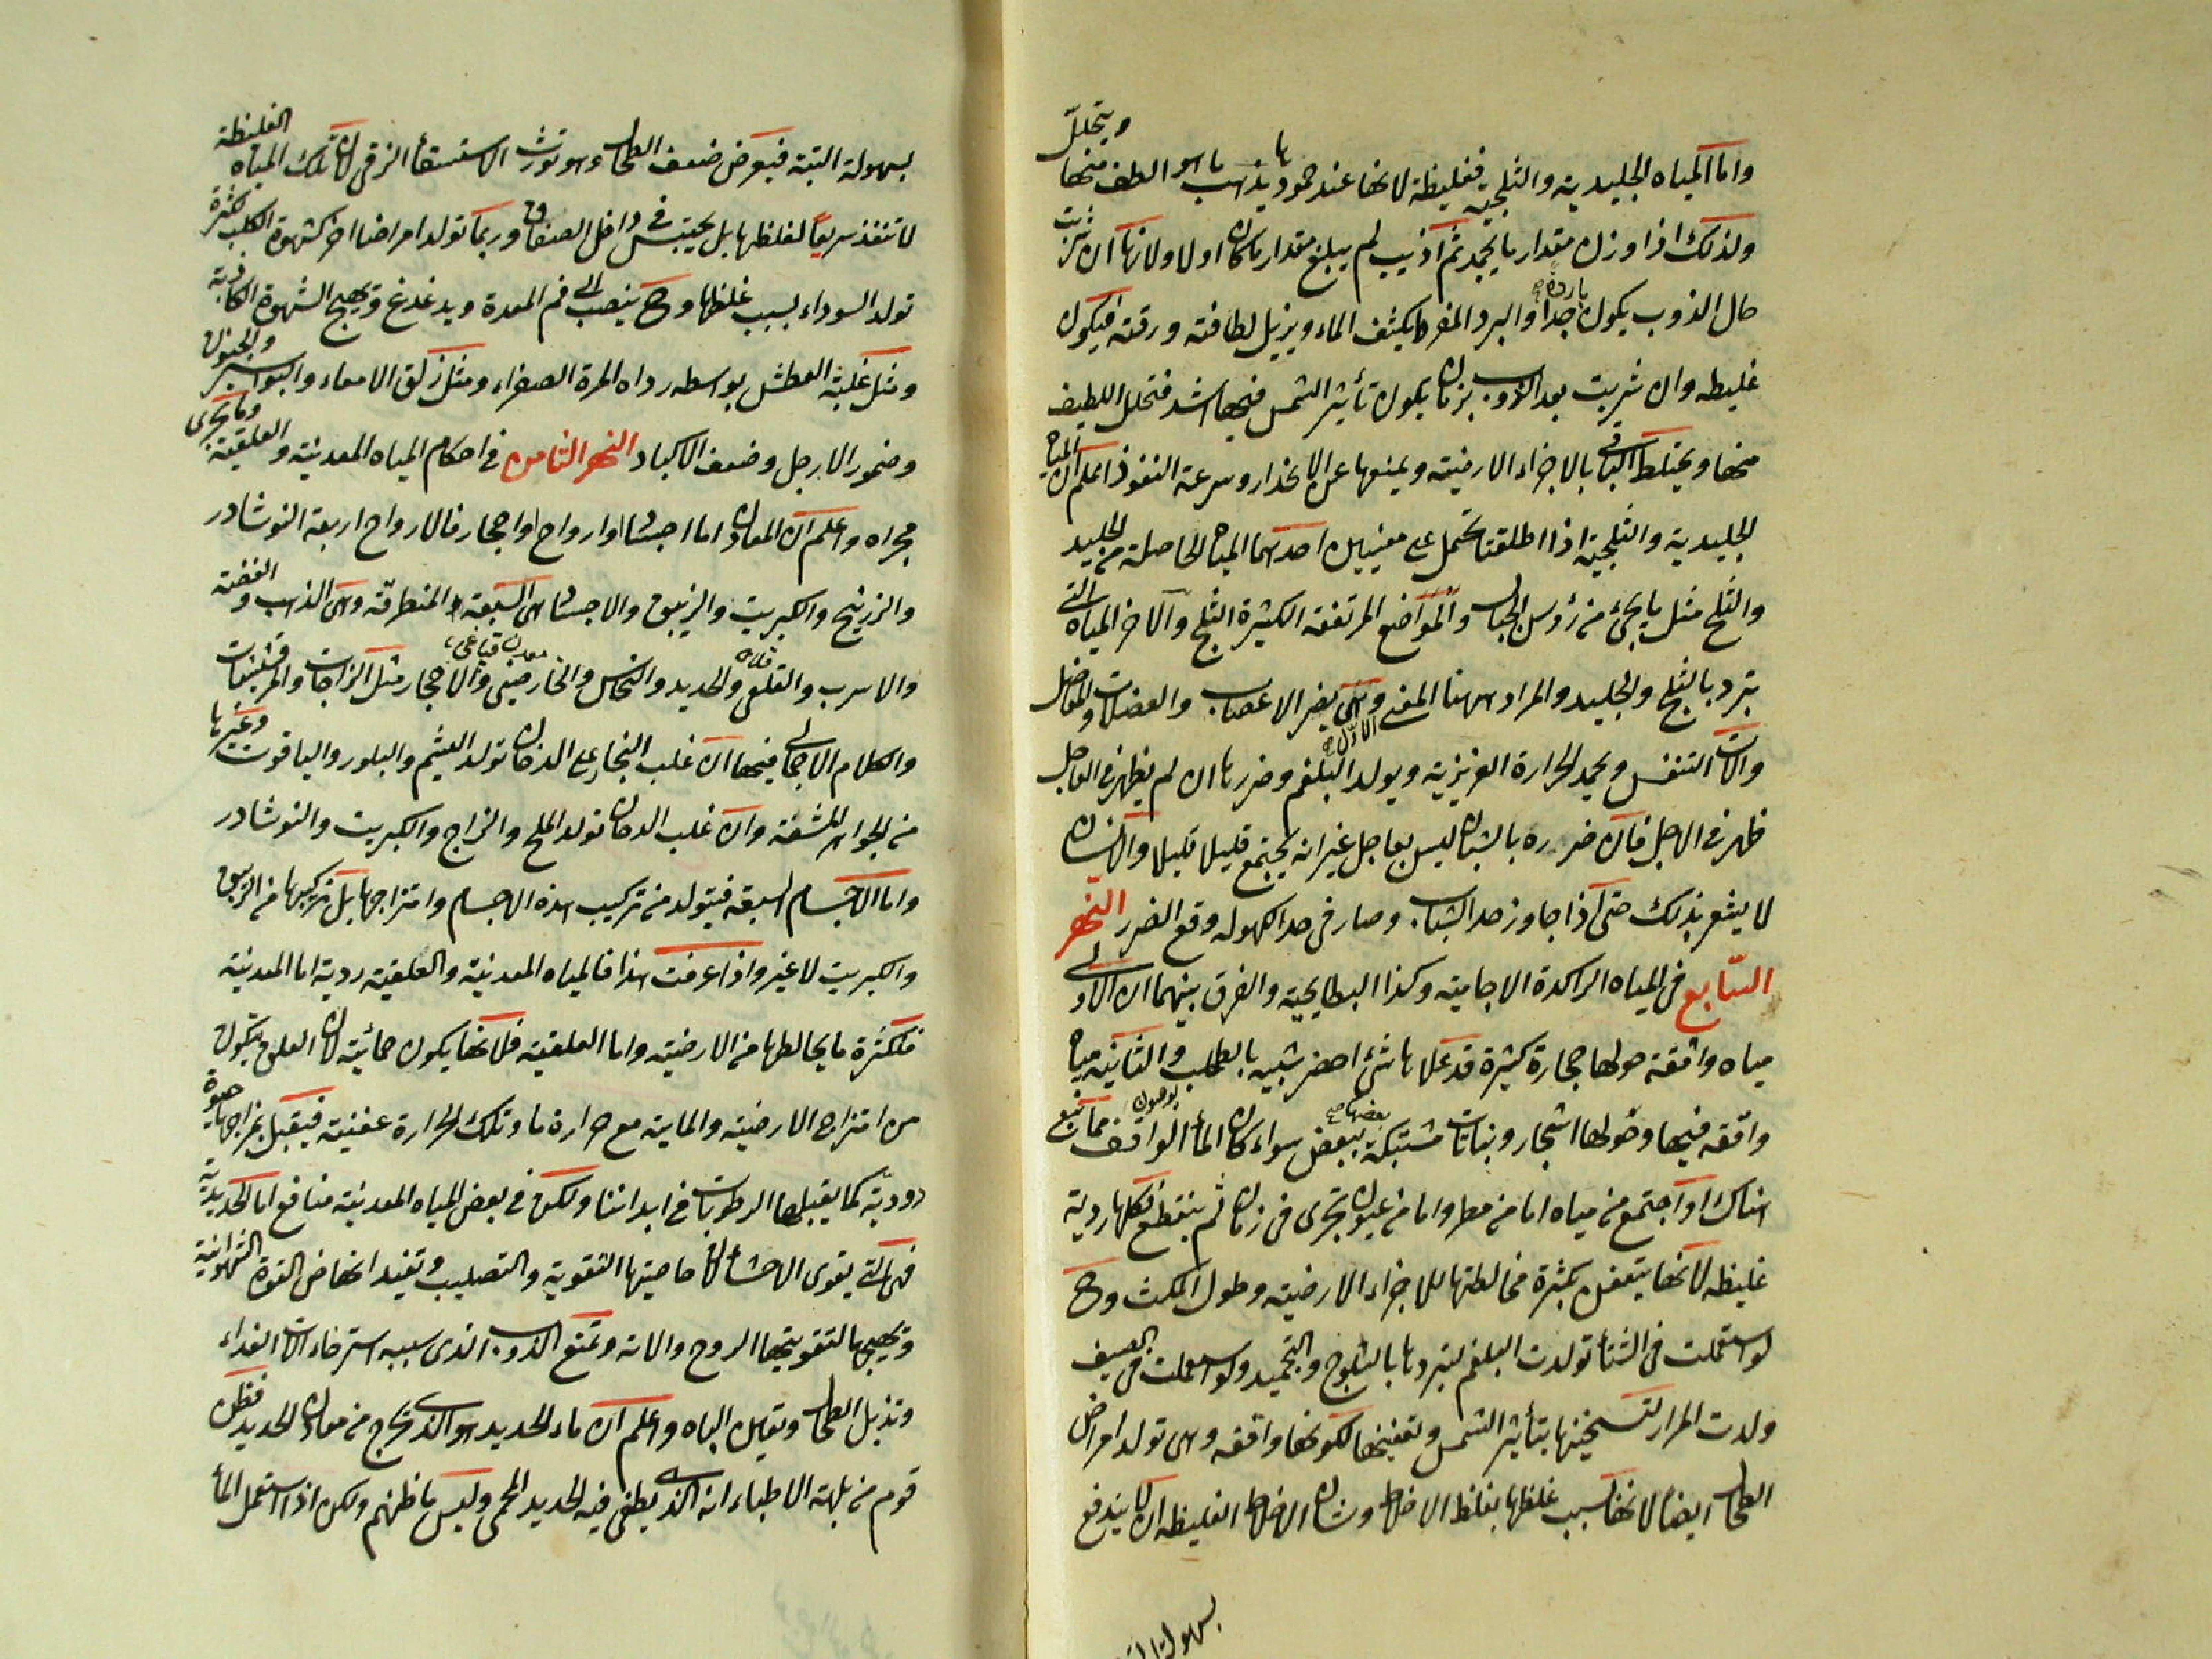 واما المياه الجليدية والثلجية فغليظة لانها عند جمودها يذهب ما هو الطف منها ويتحلل
ولذلك اذا وزن مقدار ما يجمد ثم اذيب لم يبلغ مقدار ما كان اولا ولانها ان شربت
حال الذوب يكون باردة جدا والبرد المفرط يكثف الماء ويزيل لطافته ورقته فيكون
غليظه وان شربت بعد الذوب بزمان يكون تأثير الشمس فيها اشد فتحلل اللطيف
منها ويختلط الباقى بالاجزاء الارضية ويمنعها عن الانحدار وسرعة النفوذ اعلم ان المياه
الجليدية والثلجية اذا اطلقتا تحمل على معنيين احدهما المياه الحاصلة من الجليد
والثلج مثل ما يجئ من رؤس الجبال والمواضع المرتفعة الكثيرة الثلج والآخر المياه التى
تبرد بالثلج والجليد والمراد ههنا المعنى الاول وهى يضر الاعصاب والعضلات والمفاصل
وآلات التنفس ويخمد الحرارة الغريزية ويولد البلغم وضررها ان لم يظهر فى العاجل
ظهر فى الاجل فان ضرره بالشبان ليس بعاجل غير انه يجتمع قليلا قليلا والانسان
لا يشعر بذلك حتى اذا جاوز حد الشباب وصار فى حد الكهوله وقع الضرر النهر
السابع فى المياه الراكدة الاجامية وكذا البطايحية والفرق بينهما ان الاولى
مياه واقفة حولها حجارة كثيرة قد علاها شئ اخضر شبيه بالطحلب والثانية مياه
واقفه فيها وحولها اشجار ونباتات مشتبكة بعضها ببعض سواء كان المأ الواقف مما نبع
هناك او اجتمع من مياه اما من مطر واما من عيون تجرى فى زمان ثم ينقطع فكلها ردية
غليظه لانها يتعفن بكثرة مخالطتها للاجزاء الارضية وطول المكث وح
لو استعملت فى الشتأ تولدت البلغم لتبردها بالثلوج والتجميد ولو استعملت فى الصيف
ولدت المرار لتسخينها بتأثير الشمس وتعفينها لكونها واقفه وهى تولد امراض
الطحال ايضا لانها بسبب غلظها يغلظ الاخلاط وشان الاخلاط الغليظه ان لا يندفع
بسهولة
بسهولة البتة فيعرض ضعف الطحال وهو تورث الاستسقأ الزقى لان تلك المياه الغليظة
لا تنفذ سريعا لغلظها بل يحتبس فى داخل الصفاق وربما تولد امراضا اخر كشهوة الكلب لكثرة
تولد السوداء بسبب غلظها وح ينصب الى فم المعدة ويدغدغ ويهيج الشهوة الكاذبة
ومثل غلبة العطش بواسطه رداه المرة الصفراء ومثل زلق الامعاء والبواسير والجنون
وضمور الارجل وضعف الاكباد النهر الثامن فى احكام المياه المعدنية والعلقية وما يجرى
مجراه واعلم ان المعادن اما اجساد او ارواح او احجار فالارواح اربعة النوشادر
والزرنيخ والكبريت والزيبق والاجساد هى السبعة المنطرقة وهى الذهب والفضة
والاسرب والقلعى والحديد والنحاس والخارصينى والاحجار مثل الزاجات والمرقشيثات
والكلام الاجمالى فيها ان غلب البخار على الدخان تولد اليشم والبلور والياقوت وغيرها
من الجواهر المشفة وان غلب الدخان تولد الملح والزاج والكبريت والنوشادر
واما الاجسام السبعة فيتولد من تركيب هذه الاجسام وامتزاجها بل تركيبها من الزيبق
والكبريت لا غير واذا عرفت هذا فالمياه المعدنية والعلقية ردية اما المعدنية
فلكثرة ما يخالطها من الارضية واما العلقية فلانها يكون حمائية لان العلق يتكون
من امتزاج الارضية والمائية مع حرارة ما وتلك الحرارة عفنية فيقبل بمزاجها حيوة
دودية كما يقبلها الرطوبات فى ابداننا ولكن فى بعض المياه المعدنية منافع اما الحديدية
فهى التى يقوى الاحشأ لان خاصيتها التقوية والتصليب وتفيد انهاض القوة الشهوانية
وتهيجها لتقويتها الروح والاته وتمنع الذوب الذى سببه استرخاء آلات الغداء
وتذبل الطحال وتعين الباه واعلم ان ماء الحديد هو الذى يخرج من معادن الحديد فظن
قوم من بلهة الاطباء انه الذى يطفى فيه الحديد المحمى وليس ما ظنهم ولكن اذا استعمل المأ